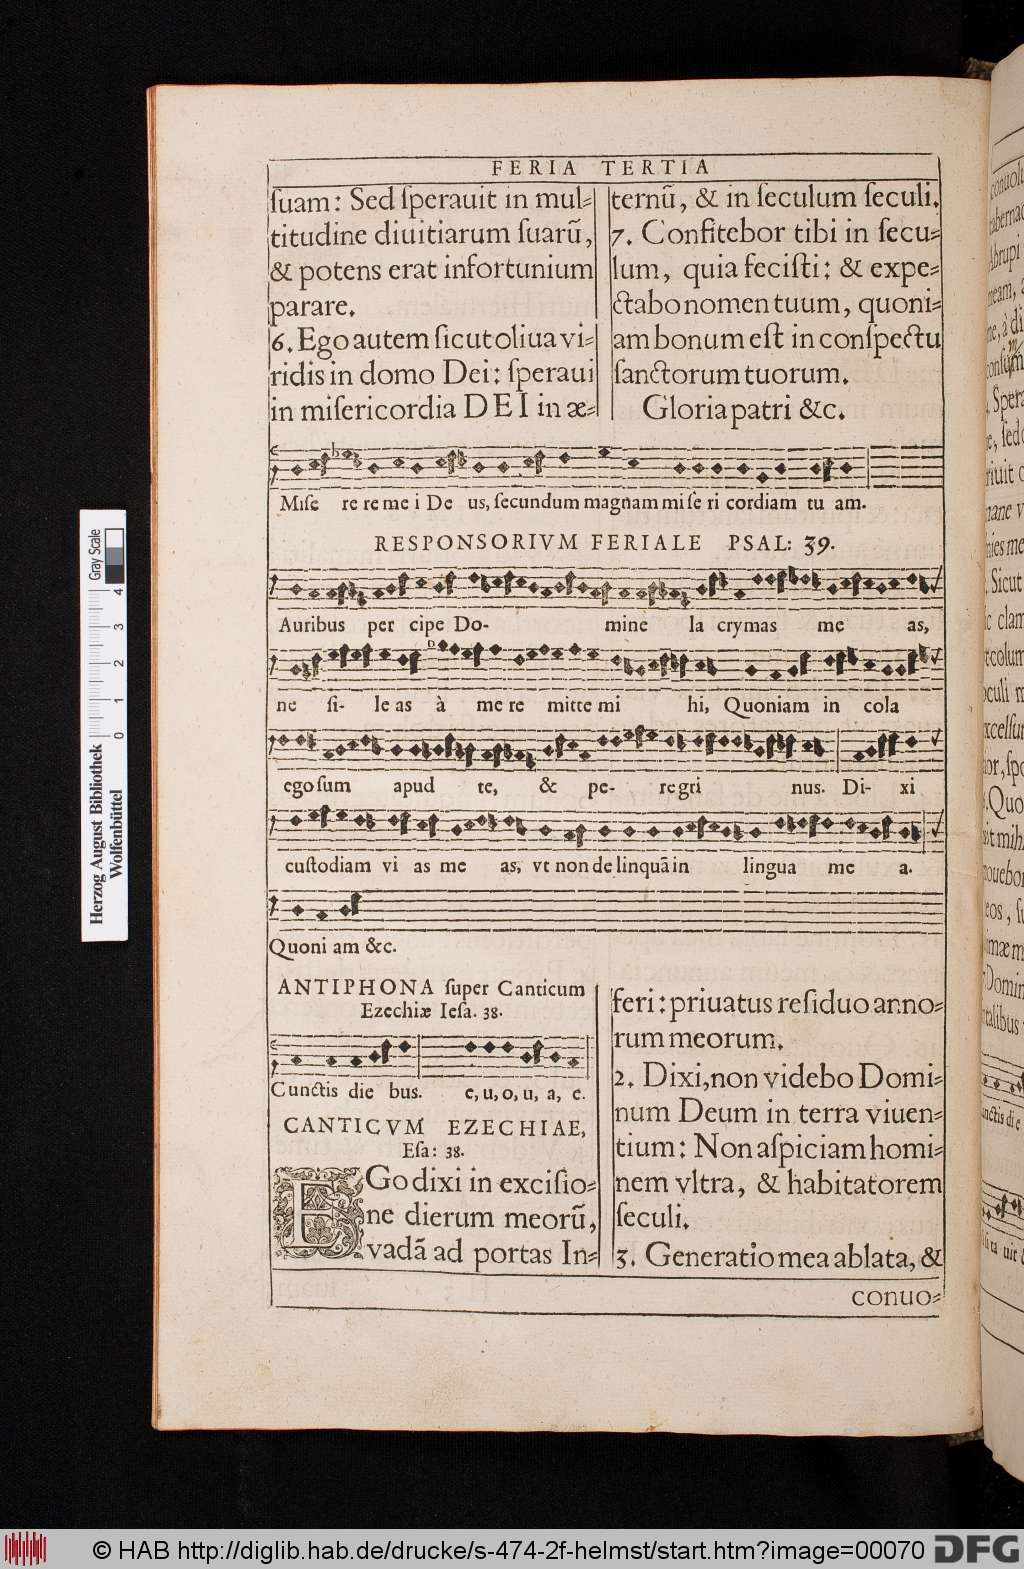 FERIA TERTIA
ſuam: Sed ſperauit in mul-
titudine diuitiarum ſuarũ,
& potens erat infortunium
parare.
6. Ego autem ſicut oliua vi-
ridis in domo Dei: ſperaui
in miſericordia DEI in æ-
ternũ, & in ſeculum ſeculi.
7. Confitebor tibi in ſecu-
lum, quia feciſti: & expe-
ctabo nomen tuum, quoni-
am bonum eſt in conſpectu
ſanctorum tuorum.
Gloria patri &c.
Miſe re re me i De us, ſecundum magnam mi ſe ri cordiam tu am.
RESPONSORIVM FERIALE PSAL: 39.
Auribus per cipe Do- mine la crymas me as,
ne ſi- le as à me re mitte mi hi, Quoniam in cola
ego ſum apud te, & pe- re gri nus. Di- xi
cuſtodiam vi as me as, vt non de linquã in lingua me a.
Quoni am &c.
ANTIPHONA ſuper Canticum
Ezechiæ Ieſa. 38.
Cunctis die bus. e, u, o, u, a, e.
CANTICVM EZECHIAE,
Eſa: 38.
EGo dixi in exciſio-
ne dierum meorũ,
vadã ad portas In-
feri: priuatus reſiduo anno-
rum meorum.
2. Dixi, non videbo Domi-
num Deum in terra viuen-
tium: Non aſpiciam homi-
nem vltra, & habitatorem
ſeculi.
3. Generatio mea ablata, &
conuo-
Gray Scale
0 1 2 3 4
Herzog August Bibliothek
Wolfenbüttel
© HAB http://diglib.hab.de/drucke/s-474-2f-helmst/start.htm?image=00070
DFG